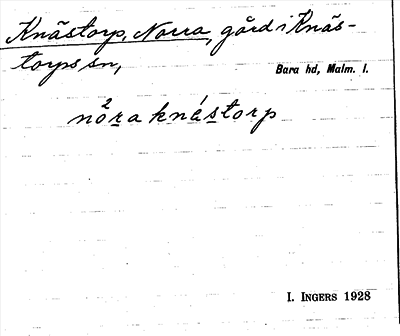 Knästorp, Norra, gård i Knäs-
torps sn,
Bara hd, Malm. l.
nòra knástorp
I. INGERS 1928